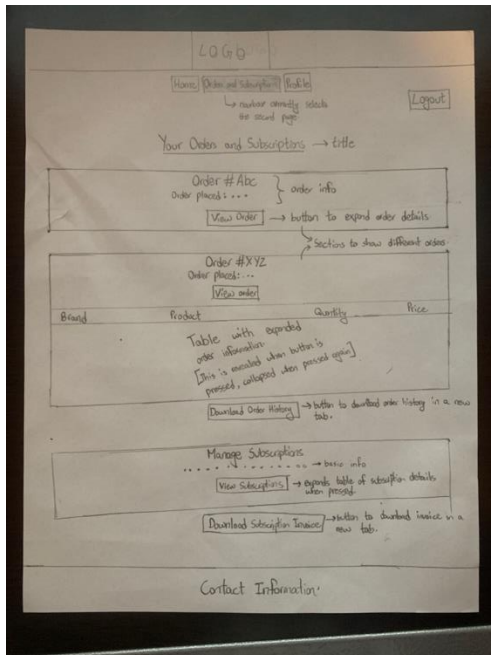 LOGO
Home Orders and Subscriptions Profile
Logout
→ navbar currently selects
the second page
Your Orders and Subscriptions → title
Order #Abc
Order placed: ... } order info
View Order → button to expand order details
Sections to show different orders.
Order #XYZ
Order placed: ...
View order
Brand Product Quantity Price
Table with expanded
order information.
[This is revealed when button is
pressed, collapsed when pressed again]
Download Order History → button to download order history in a new
tab.
Manage Subscriptions
→ basic info
View Subscriptions → expands table of subscription details
when pressed.
Download Subscription Invoice → button to download invoice in a
new tab.
Contact Information.